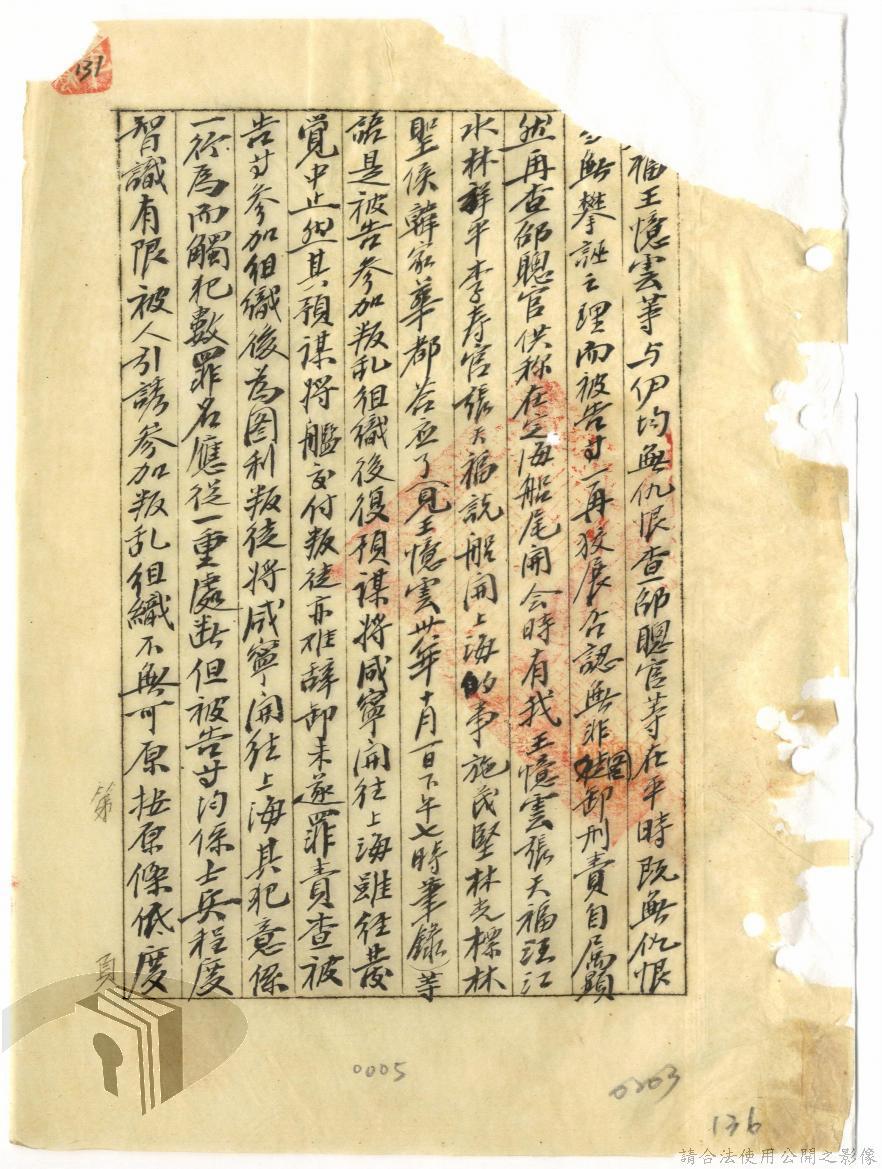 131
福王憶雲等与伊均無仇恨查邵聰官等在平時既無仇恨
無攀誣之理而被告等一再狡展否認無非圖卸刑責自屬顯
然再查邵聰官供称在定海船尾開会時有我王憶雲張天福汪江
水林祥平李寿官張天福説船開上海的事施茂堅林克標林
聖侯韓家華都答应了(見王憶雲卅八年十月一日下午七時筆錄)等
語是被告参加叛乱组織後復預謀將咸寧開往上海雖经發
覺中止然其預謀將艦交付叛徒亦难辞卸未遂罪責查被
告等参加组織後為图利叛徒將咸寧開往上海其犯意係
一行為而觸犯數罪名應从一重處断但被告等均係士兵程度
智識有限被人引誘参加叛乱组織不無可原按原條低度
第 頁
0005
0203
136
請合法使用公開之影像